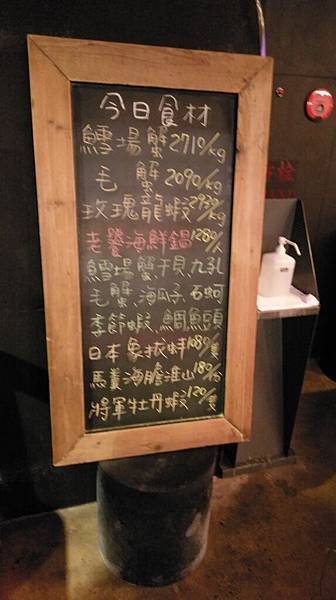 今日食材
鱈場蟹2710/kg
毛 蟹2090/kg
玫瑰龍蝦2930/kg
老饕海鮮鍋1280/人
鱈場蟹、干貝、九孔
毛蟹、海瓜子、石蚵
季節蝦、鯛魚頭
日本象拔蚌1080/隻
馬糞海膽淮山180/份
將軍牡丹蝦120/隻